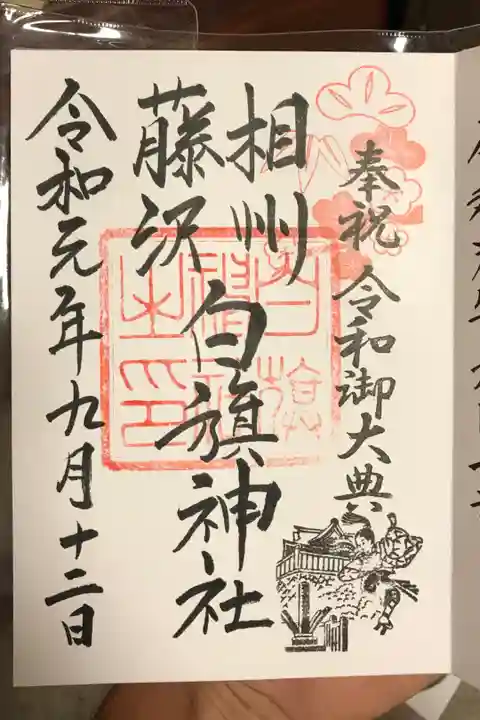 奉祝 令和御大典
相州
藤沢
白旗神社
白旗
神社
之印
令和元年九月十二日